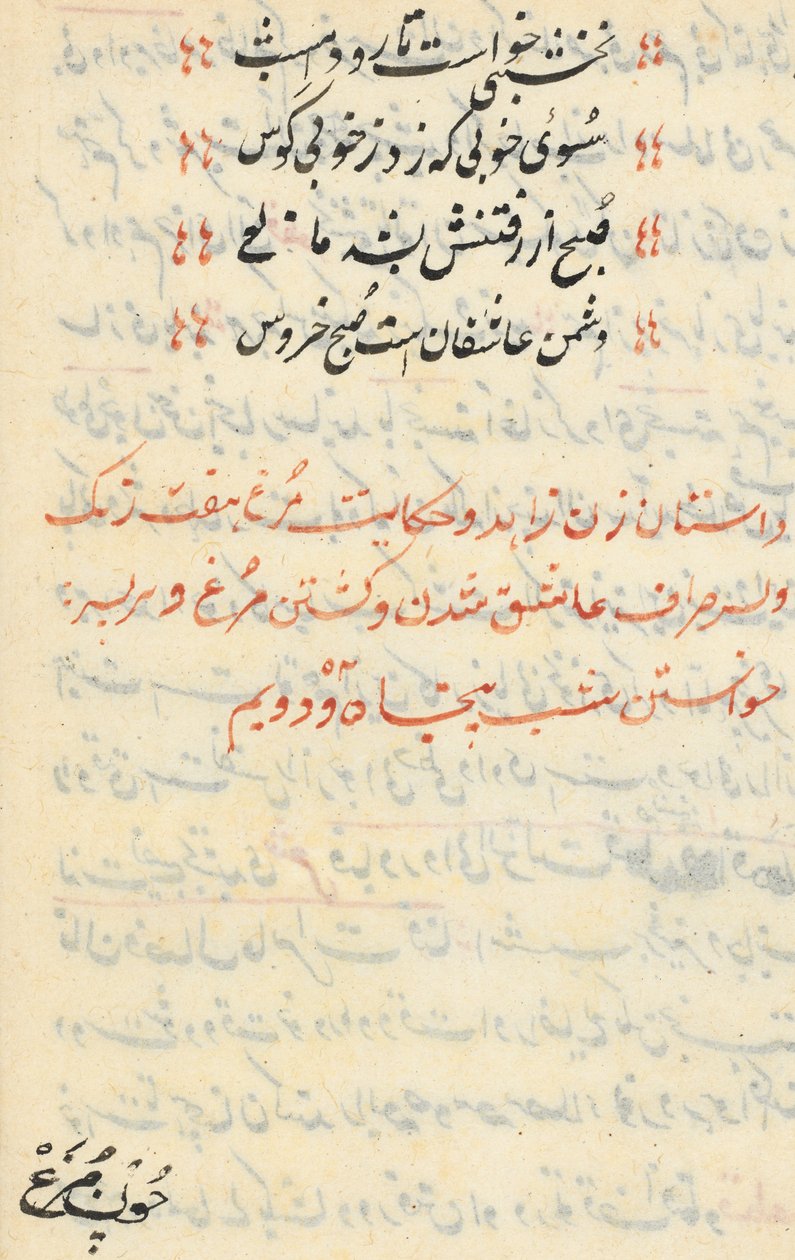 نخشبی خواست تا رود امشب
سُوئ خوبی که زد ز خوبی کوس
صُبح از رفتنش بشد مانع
دشمن عاشقان است صُبح خروس
داستان زن زاهد و حکایت مُرغ هفت رنک
و پسر صراف عاشق شدن و کشتن مُرغ و سر پسر
خواستن شب پنجاه و دویم
چون مُرغ